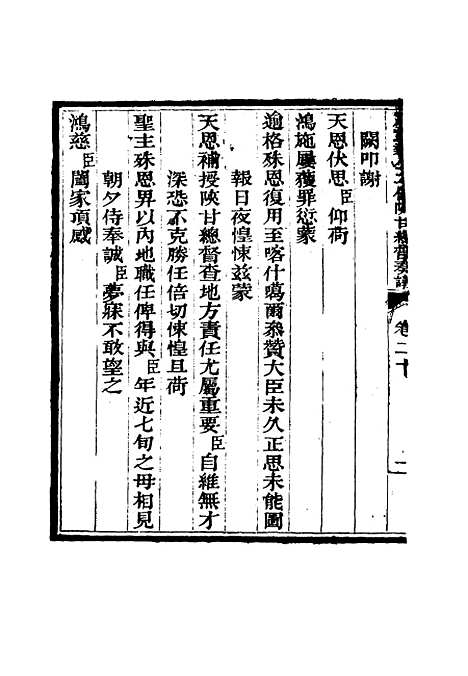 闕叩謝
天恩伏思臣仰荷
鴻施屢獲罪愆蒙
逾格殊恩復用至喀什噶爾叅贊大臣未久正思未能圖
報日夜惶悚兹蒙
天恩補授陝甘總督查地方責任尤屬重要臣自維無才
深恐不克勝任倍切悚惶且荷
聖主殊恩畀以內地職任俾得與臣年近七旬之母相見
朝夕侍奉誠臣夢寐不敢望之
鴻慈臣闔家頂感
陝甘總督奏議
卷二十